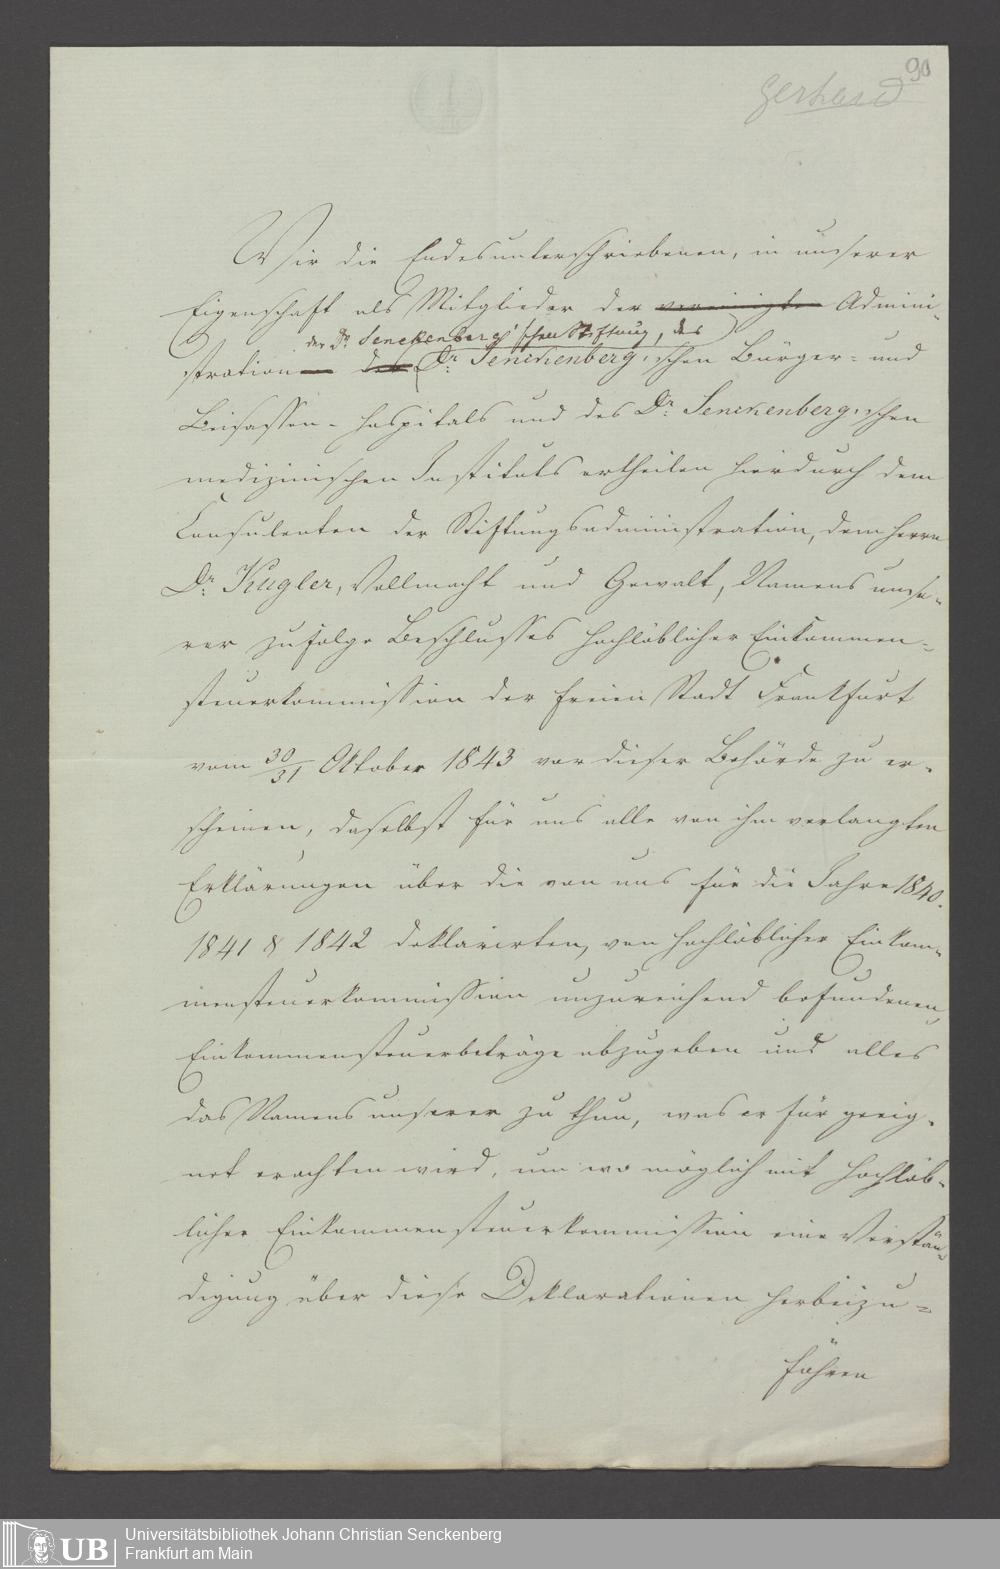 90
Gerhard
Wir die Endesunterschriebenen, in unserer
Eigenschaft als Mitglieder der vereinigten Admini-
der Dr. Senckenberg'schen Stiftung, des
stration des Dr. Senckenberg'schen Bürger- und
Beisassen-Hospitals und des Dr. Senckenberg'schen
medizinischen Instituts ertheilen hierdurch dem
Consulenten der Stiftungsadministration, dem Herrn
Dr. Kugler, Vollmacht und Gewalt, Namens unse-
rer zufolge Beschlusses hochlöblicher Einkommen-
steuerkommission der freien Stadt Frankfurt
vom 30/31 Oktober 1843 vor dieser Behörde zu er-
scheinen, daselbst für uns alle von ihm verlangten
Erklärungen über die von uns für die Jahre 1840.
1841 & 1842 deklarirten, von hochlöblicher Einkom-
mensteuerkommission unzureichend befundenen,
Einkommensteuerbeträge abzugeben und alles
das Namens unserer zu thun, was er für geeig-
net erachten wird, um wo möglich mit hochlöb-
licher Einkommensteuerkommission eine Verstän-
digung über diese Deklarationen herbeizu-
führen
UB
Universitätsbibliothek Johann Christian Senckenberg
Frankfurt am Main